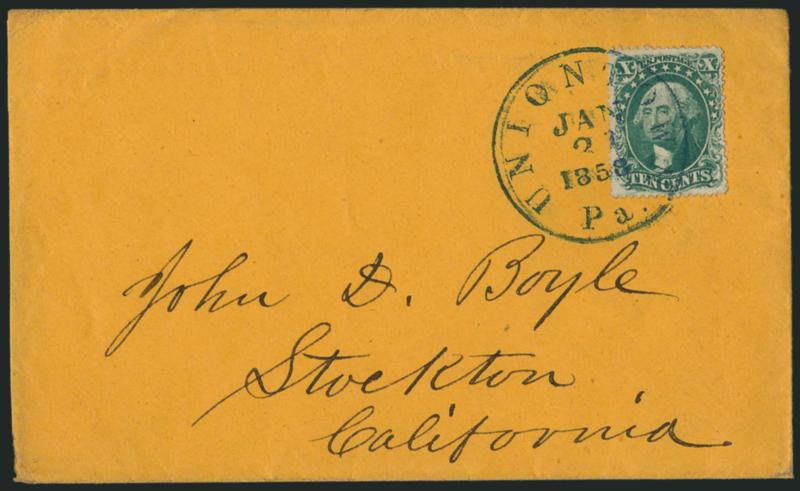 UNIONTOWN
JAN
1858
Pa.
X X
U.S. POSTAGE
TEN CENTS.
John D. Boyle
Stockton
California